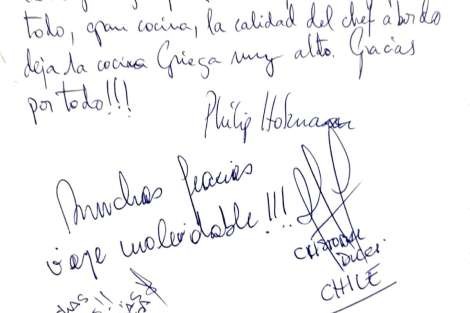 todo, gran cocina, la calidad del chef abordo
deja la cocina Griega muy alto. Gracias
por todo!!!
Philip
Muchas Gracias
viaje inolvidable!!!
CHILE